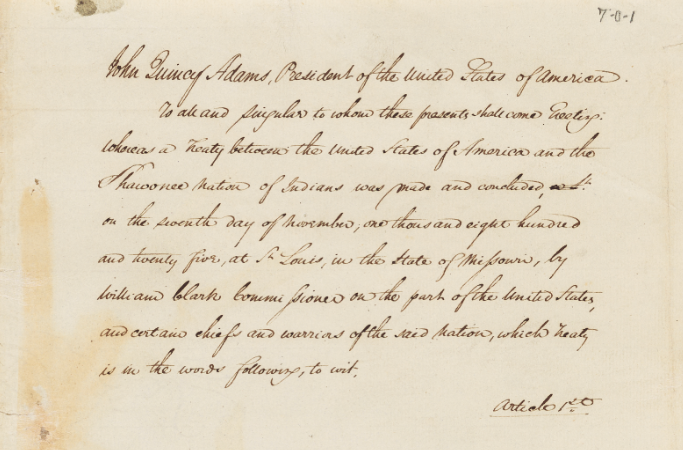 7-0-1
John Quincy Adams, President of the United States of America.
To all and singular to whom these presents shall come Greeting:
Whereas a Treaty between the United States of America and the
Shawonee Nation of Indians was made and concluded,
on the seventh day of November, one thousand eight hundred
and twenty five, at St. Louis, in the State of Missouri, by
William Clark Commissioner on the part of the United States,
and certain chiefs and warriors of the said Nation, which Treaty
is in the words following, to wit.
Article 1st.